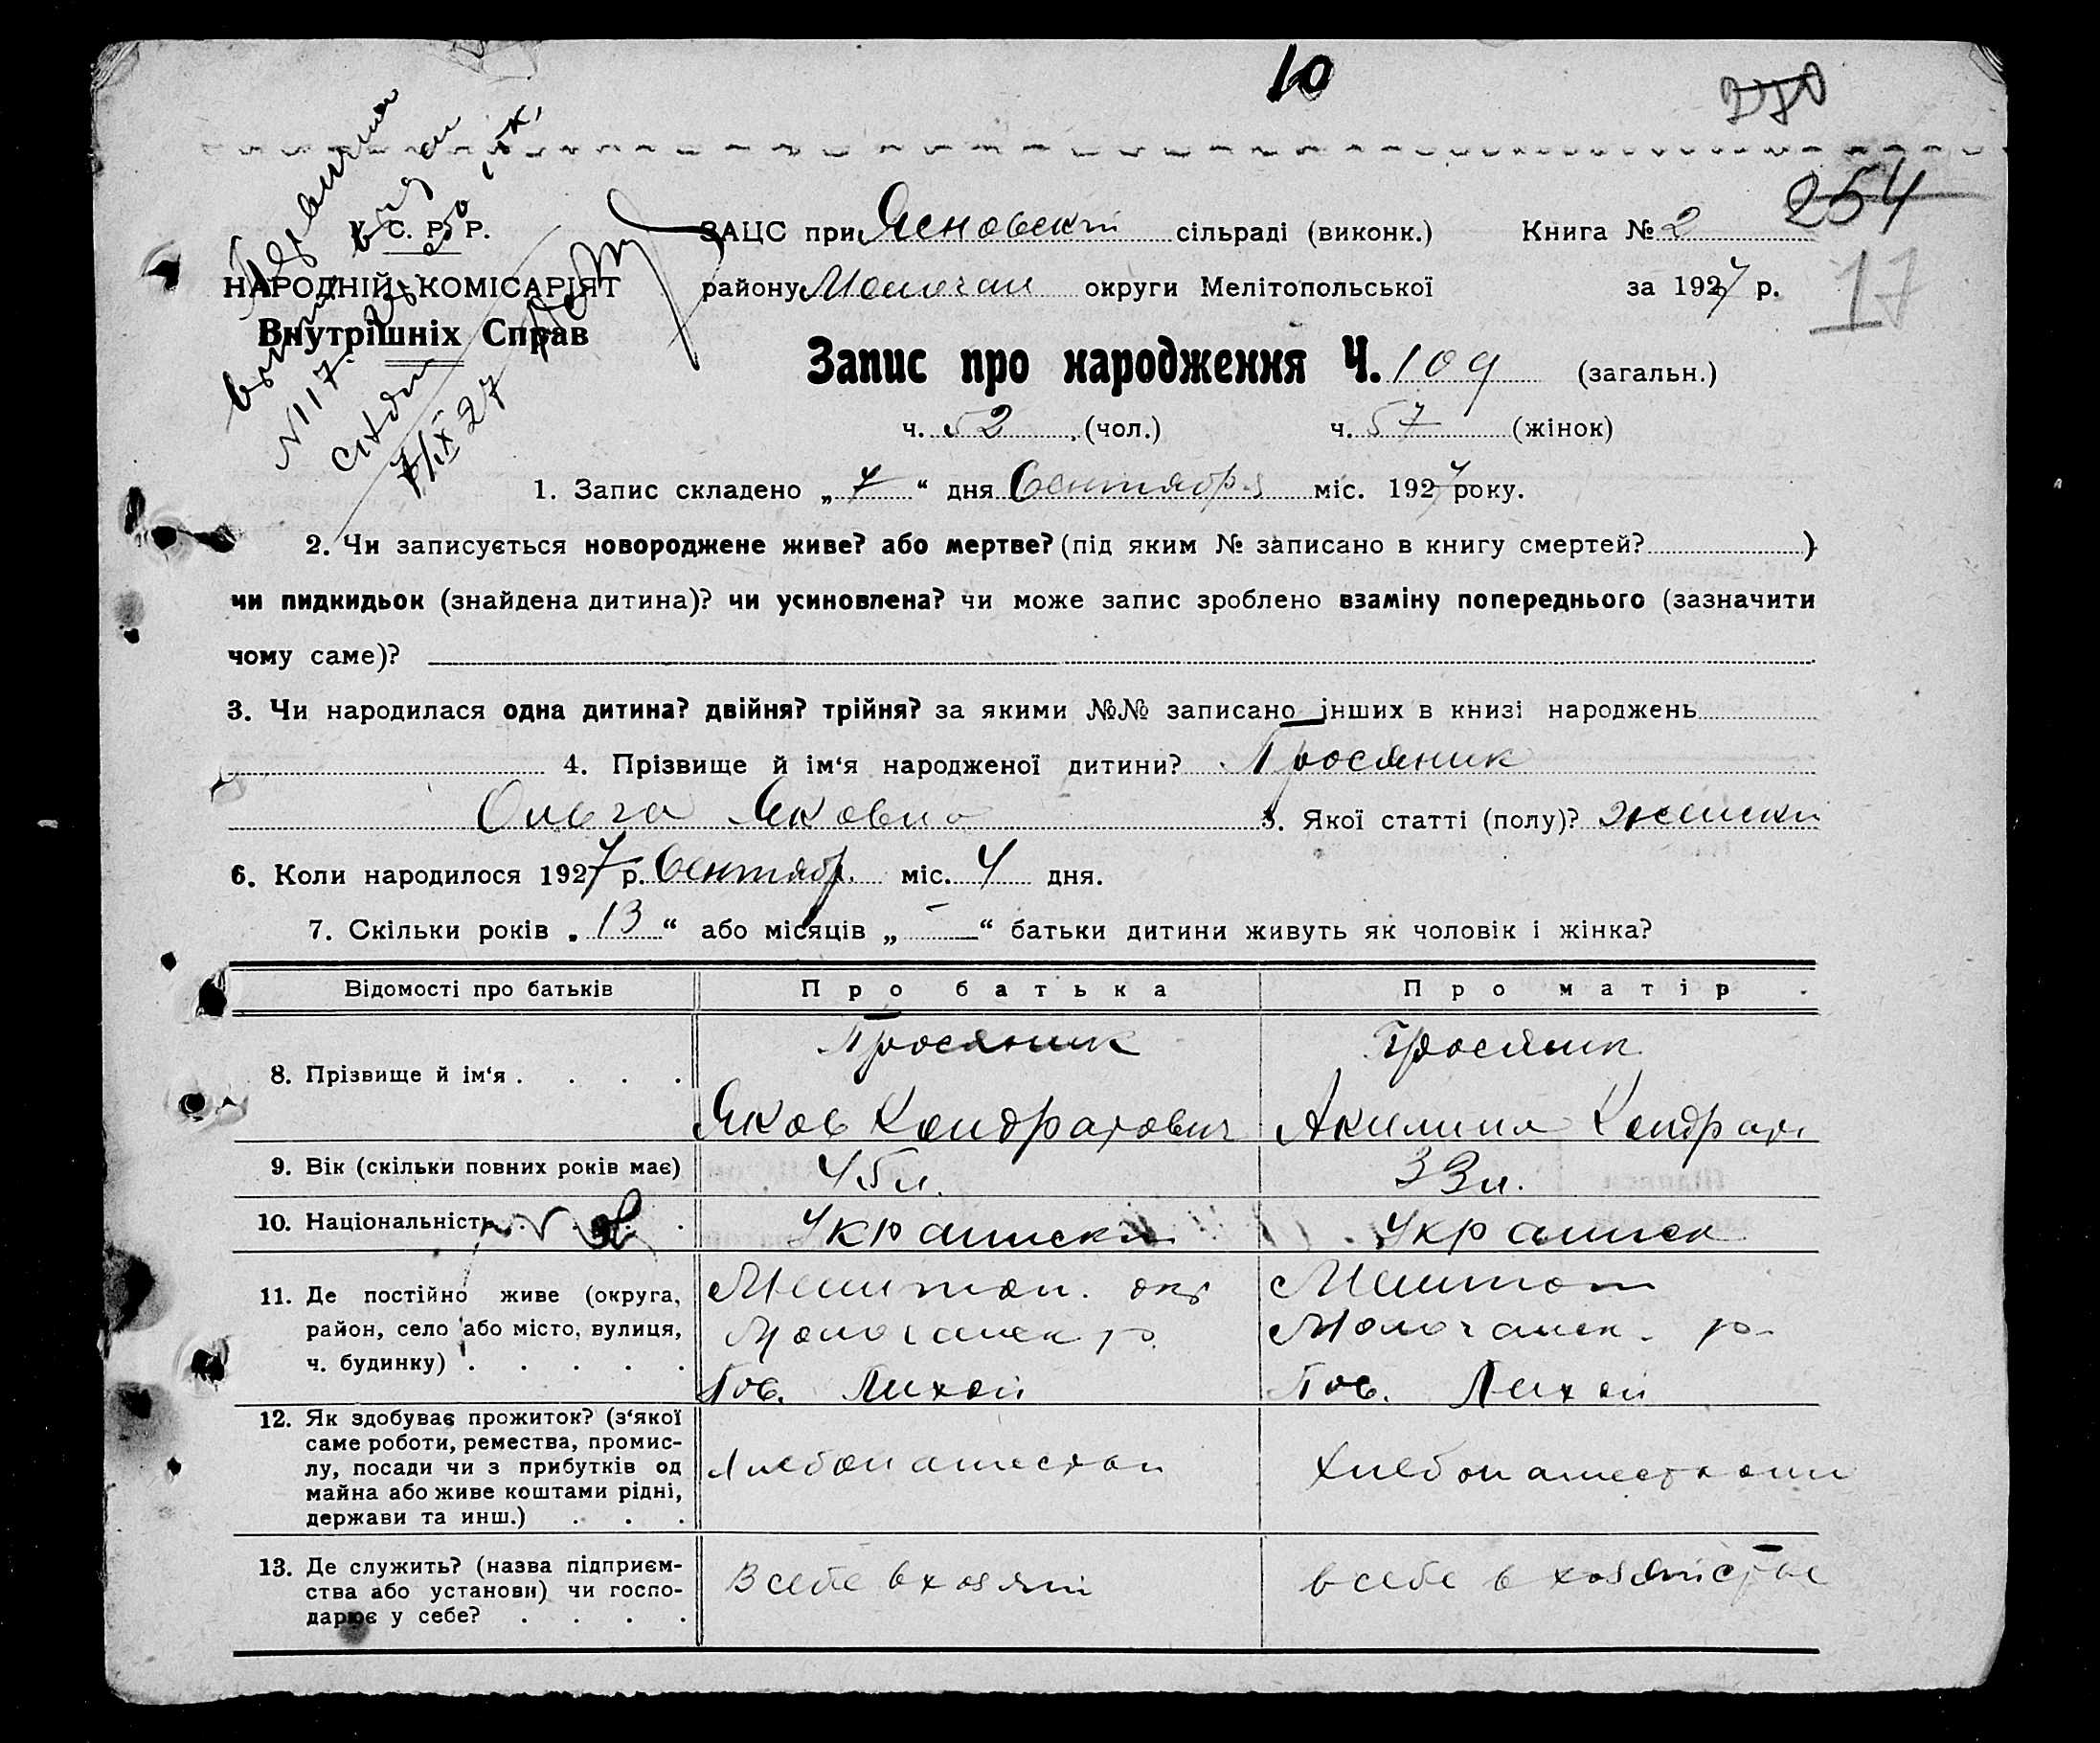 10
270
254
17
У. С. Р. Р.
НАРОДНІЙ КОМІСАРІЯТ
Внутрішніх Справ
N 117
7/IX 27
ЗАЦС при Ясновскій сільраді (виконк.) Книга № 2
району Молочан округи Мелітопольської за 1927 р.
Запис про народження Ч. 109 (загальн.)
ч. 52 (чол.) ч. 57 (жінок)
1. Запис складено „ 7 “ дня Сентября міс. 1927 року.
2. Чи записується новороджене живе? або мертве? (під яким № записано в книгу смертей? )
чи пидкидьок (знайдена дитина)? чи усиновлена? чи може запис зроблено взаміну попереднього (зазначити
чому саме)?
3. Чи народилася одна дитина? двійня? трійня? за якими №№ записано інших в книзі народжень
4. Прізвище й ім‘я народженої дитини? Просяник
Ольга Яковна 5. Якої статті (полу)? женски
6. Коли народилося 1927 р. Сентябр. міс. 4 дня.
7. Скільки років „ 13 “ або місяців „ - “ батьки дитини живуть як чоловік і жінка?
Відомості про батьків Про батька Про матір
8. Прізвище й ім‘я Просяник Просяник
Яков Кондратович Акилина Кондрат
9. Вік (скільки повних років має) 45 л. 33 л.
10. Національність Украинский Украинск
11. Де постійно живе (округа, Мелитоп. окр Мелитоп
район, село або місто, вулиця, Молочанск р. Молочанск. р.
ч. будинку) Гов. Лихой Гов. Лихой
12. Як здобуває прожиток? (з‘якої
саме роботи, ремества, промис-
лу, посади чи з прибутків од Хлебопашество Хлебопашеством
майна або живе коштами рідні,
держави та инш.)
13. Де служить? (назва підприєм- В себе в хозяй в себе в хозяйстве
ства або установи) чи госпо-
дарює у себе?